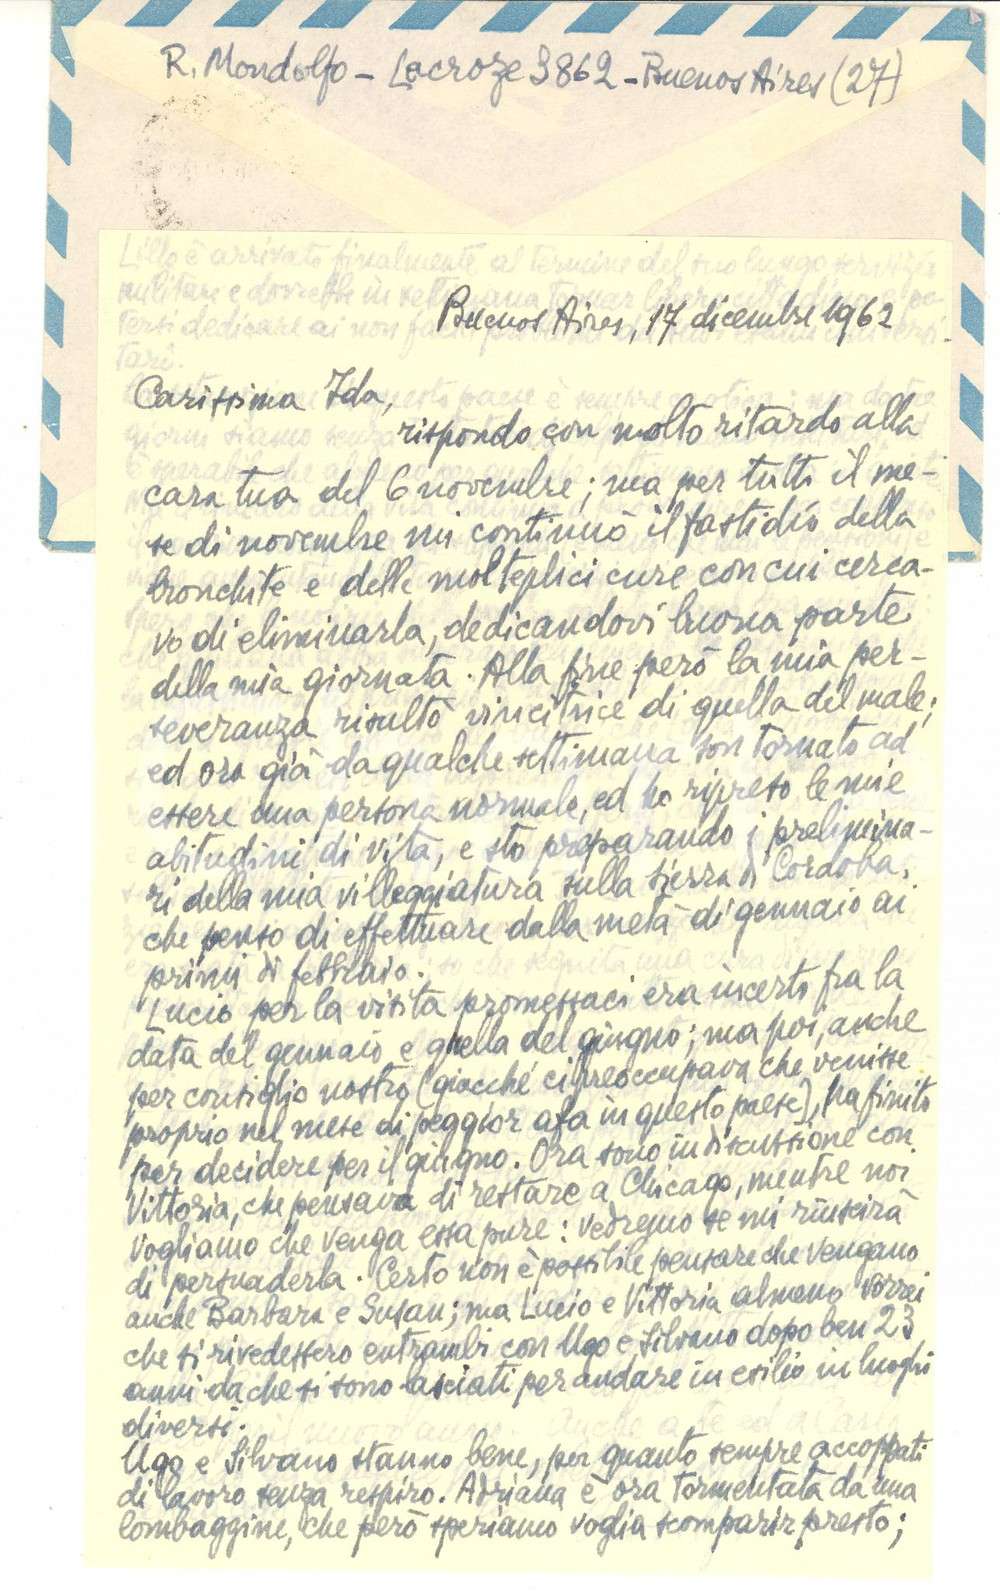 R. Mondolfo - Lacroze 3862 - Buenos Aires (27)
Lillo è arrivato finalmente al termine del suo lungo servizio
militare e dovrebbe in settimana tornar libero cittadino e po-
tersi dedicare ai non
tari.
Buenos Aires, 17 dicembre 1962
Carissima Ida,
rispondo con molto ritardo alla
cara tua del 6 novembre; ma per tutto il me-
se di novembre mi continuò il fastidio della
bronchite e delle molteplici cure con cui cerca-
vo di eliminarla, dedicandovi buona parte
della mia giornata. Alla fine però la mia per-
severanza risultò vincitrice di quella del male;
ed ora già da qualche settimana son tornato ad
essere una persona normale, ed ho ripreso le mie
abitudini di vita, e sto preparando i prelimina-
ri della mia villeggiatura sulla sierra di Cordoba,
che penso di effettuare dalla metà di gennaio ai
primi di febbraio.
Lucio per la visita promessaci era incerto fra la
data del gennaio e quella del giugno; ma poi, anche
per consiglio nostro (giacché ci preoccupava che venisse
proprio nel mese di peggior afa in questo paese), ha finito
per decidere per il giugno. Ora sono in discussione con
Vittoria, che pensava di restare a Chicago, mentre noi
vogliamo che venga essa pure: vedremo se mi riuscirà
di persuaderla. Certo non è possibile pensare che vengano
anche Barbara e Susan; ma Lucio e Vittoria almeno vorrei
che si rivedessero entrambi con Ugo e Silvano dopo ben 23
anni da che si sono lasciati per andare in esilio in luoghi
diversi.
Ugo e Silvano stanno bene, per quanto sempre accoppati
di lavoro senza respiro. Adriana è ora tormentata da una
lombaggine, che però speriamo voglia scomparir presto;